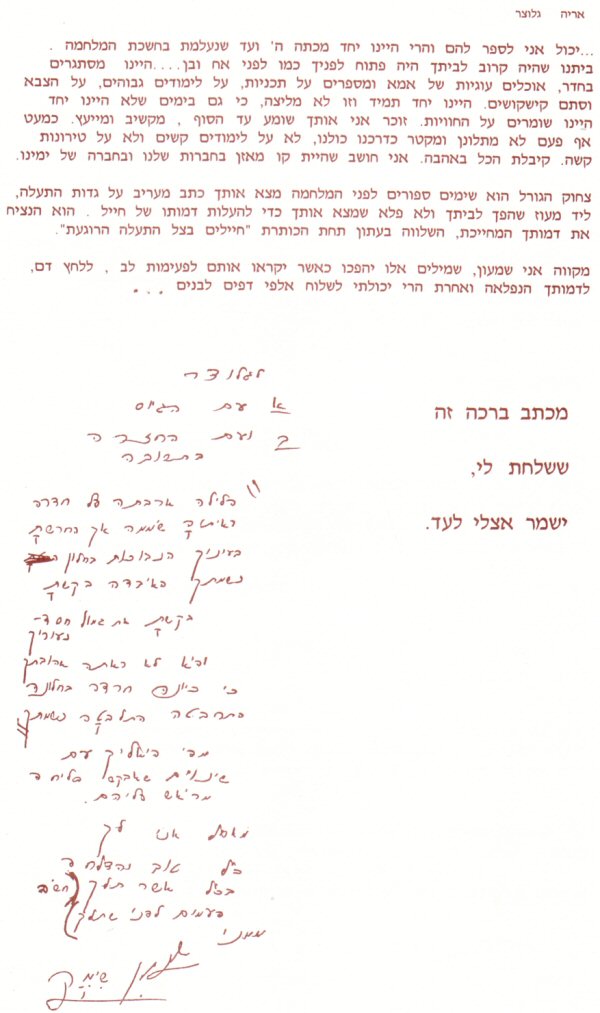 אריה גלוצר
...יכול אני לספר להם והרי היינו יחד מכתה ה' ועד שנעלמת בחשכת המלחמה .
ביתנו שהיה קרוב לביתך היה פתוח לפניך כמו לפני אח ובן....היינו מסתגרים
בחדר, אוכלים עוגיות של אמא ומספרים על תכניות, על לימודים גבוהים, על הצבא
וסתם קישקושים. היינו יחד תמיד וזו לא מליצה, כי גם בימים שלא היינו יחד
היינו שומרים על החוויות. זוכר אני אותך שומע עד הסוף , מקשיב ומייעץ. כמעט
אף פעם לא מתלונן ומקטר כדרכנו כולנו, לא על לימודים קשים ולא על טירונות
קשה. קיבלת הכל באהבה. אני חושב שהיית קו מאזן בחברות שלנו ובחברה של ימינו.
צחוק הגורל הוא שימים ספורים לפני המלחמה מצא אותך כתב מעריב על גדות התעלה,
ליד מעוז שהפך לביתך ולא פלא שמצא אותך כדי להעלות דמותו של חייל . הוא הנציח
את דמותך המחייכת, השלווה בעתון תחת הכותרת "חיילים בצל התעלה הרוגעת".
מקווה אני שמעון, שמילים אלו יהפכו כאשר יקראו אותם לפעימות לב , ללחץ דם,
לדמותך הנפלאה ואחרת הרי יכולתי לשלוח אלפי דפים לבנים ...
מכתב ברכה זה
ששלחת לי,
ישמר אצלי לעד.
לגלוצר
א עם הגיוס
ב ועם החזרה
בתשובה
"בלילה ארבתה על חדרה
ראיתָה שוממה אך נחרשתָ
בעיניך הנבוכות בחלון
נשמתך האיבדה בקשתָ
בקשתָ את גמול חסד-
נעוריך
והיא לא ראתה אהובתך
כי כיונה חרדה בחלונה
התחבטה התלבטה נשמתך"
מפי ביאליק עם
שינויים שאבקש סליחה
מראש עליהם.
מאחל אני לך
כל טוב והצלחה
בכל אשר תלך
פעמים לפני שתלך
ממני
שמעון